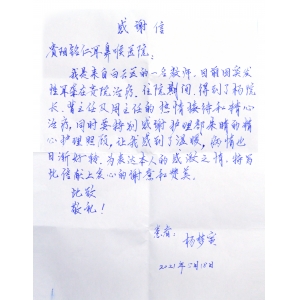 感谢信
贵阳铭仁耳鼻喉医院：
我是来自白云区的一名教师，目前因突发
性耳聋在贵院治疗。住院期间，得到了杨院
长、曾主任及周主任的热情接待和精心
治疗，同时要特别感谢护理部的精
心护理照顾，让我感到了温暖，病情也
日渐好转，为表达本人的感激之情，特写
此信献上衷心的谢意和赞美。
此致
敬礼！
患者：
杨梦寅
2021年